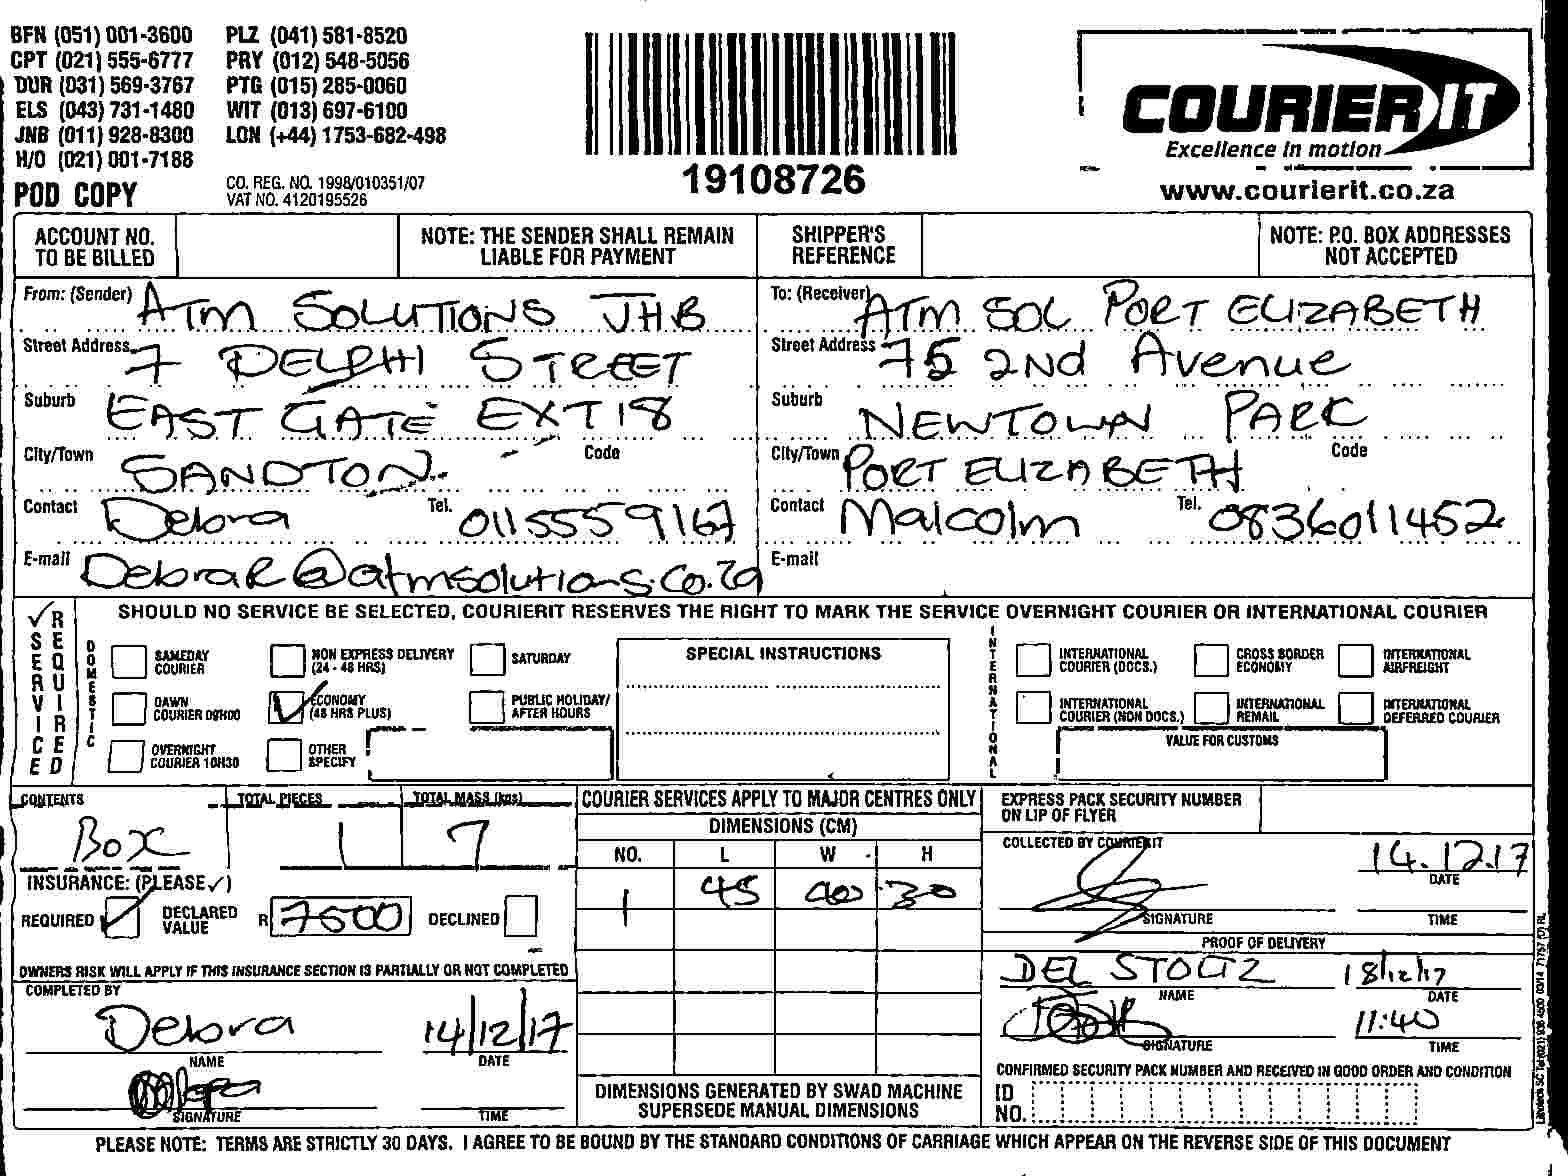 BFN (051) 001-3600 PLZ (041) 581-8520
CPT (021) 555-6777 PRY (012) 548-5056
DUR (031) 569-3767 PTG (015) 285-0060
ELS (043) 731-1480 WIT (013) 697-6100
JNB (011) 928-8300 LON (+44) 1753-682-498
H/O (021) 001-7188
POD COPY
CO. REG. NO. 1998/010351/07
VAT NO. 4120195526
19108726
COURIER IT
Excellence in motion
www.courierit.co.za
ACCOUNT NO. TO BE BILLED
NOTE: THE SENDER SHALL REMAIN LIABLE FOR PAYMENT
SHIPPER'S REFERENCE
NOTE: P.O. BOX ADDRESSES NOT ACCEPTED
From: (Sender) ATM SOLUTIONS JHB
Street Address 7 DELPHI STREET
Suburb EAST GATE EXT 18
City/Town SANDTON. Code
Contact Debora Tel. 0115559167
E-mail DeboraR@atmsolutions.co.za
To: (Receiver) ATM SOL PORT ELIZABETH
Street Address 75 2Nd Avenue
Suburb NEWTOWN PARK
City/Town PORT ELIZABETH Code
Contact Malcolm Tel. 0836011452
E-mail
✓ SERVICE REQUIRED
SHOULD NO SERVICE BE SELECTED, COURIERIT RESERVES THE RIGHT TO MARK THE SERVICE OVERNIGHT COURIER OR INTERNATIONAL COURIER
DOMESTIC
SAMEDAY COURIER
NON EXPRESS DELIVERY (24 - 48 HRS)
SATURDAY
DAWN COURIER 09H00
ECONOMY (48 HRS PLUS)
PUBLIC HOLIDAY/ AFTER HOURS
OVERNIGHT COURIER 10H30
OTHER SPECIFY
SPECIAL INSTRUCTIONS
INTERNATIONAL
INTERNATIONAL COURIER (DOCS.)
CROSS BORDER ECONOMY
INTERNATIONAL AIRFREIGHT
INTERNATIONAL COURIER (NON DOCS.)
INTERNATIONAL REMAIL
INTERNATIONAL DEFERRED COURIER
VALUE FOR CUSTOMS
CONTENTS TOTAL PIECES TOTAL MASS (kgs)
Box 1 7
INSURANCE: (PLEASE ✓)
REQUIRED ✓ DECLARED VALUE R 7500 DECLINED
OWNERS RISK WILL APPLY IF THIS INSURANCE SECTION IS PARTIALLY OR NOT COMPLETED
COMPLETED BY
Debora 14/12/17
NAME DATE
SIGNATURE TIME
COURIER SERVICES APPLY TO MAJOR CENTRES ONLY
DIMENSIONS (CM)
NO. L W H
1 45 40 30
DIMENSIONS GENERATED BY SWAD MACHINE
SUPERSEDE MANUAL DIMENSIONS
EXPRESS PACK SECURITY NUMBER ON LIP OF FLYER
COLLECTED BY COURIERIT
14.12.17
DATE
SIGNATURE TIME
PROOF OF DELIVERY
DEL STOLTZ 18/12/17
NAME DATE
11:40
SIGNATURE TIME
CONFIRMED SECURITY PACK NUMBER AND RECEIVED IN GOOD ORDER AND CONDITION
ID NO.
PLEASE NOTE: TERMS ARE STRICTLY 30 DAYS. I AGREE TO BE BOUND BY THE STANDARD CONDITIONS OF CARRIAGE WHICH APPEAR ON THE REVERSE SIDE OF THIS DOCUMENT